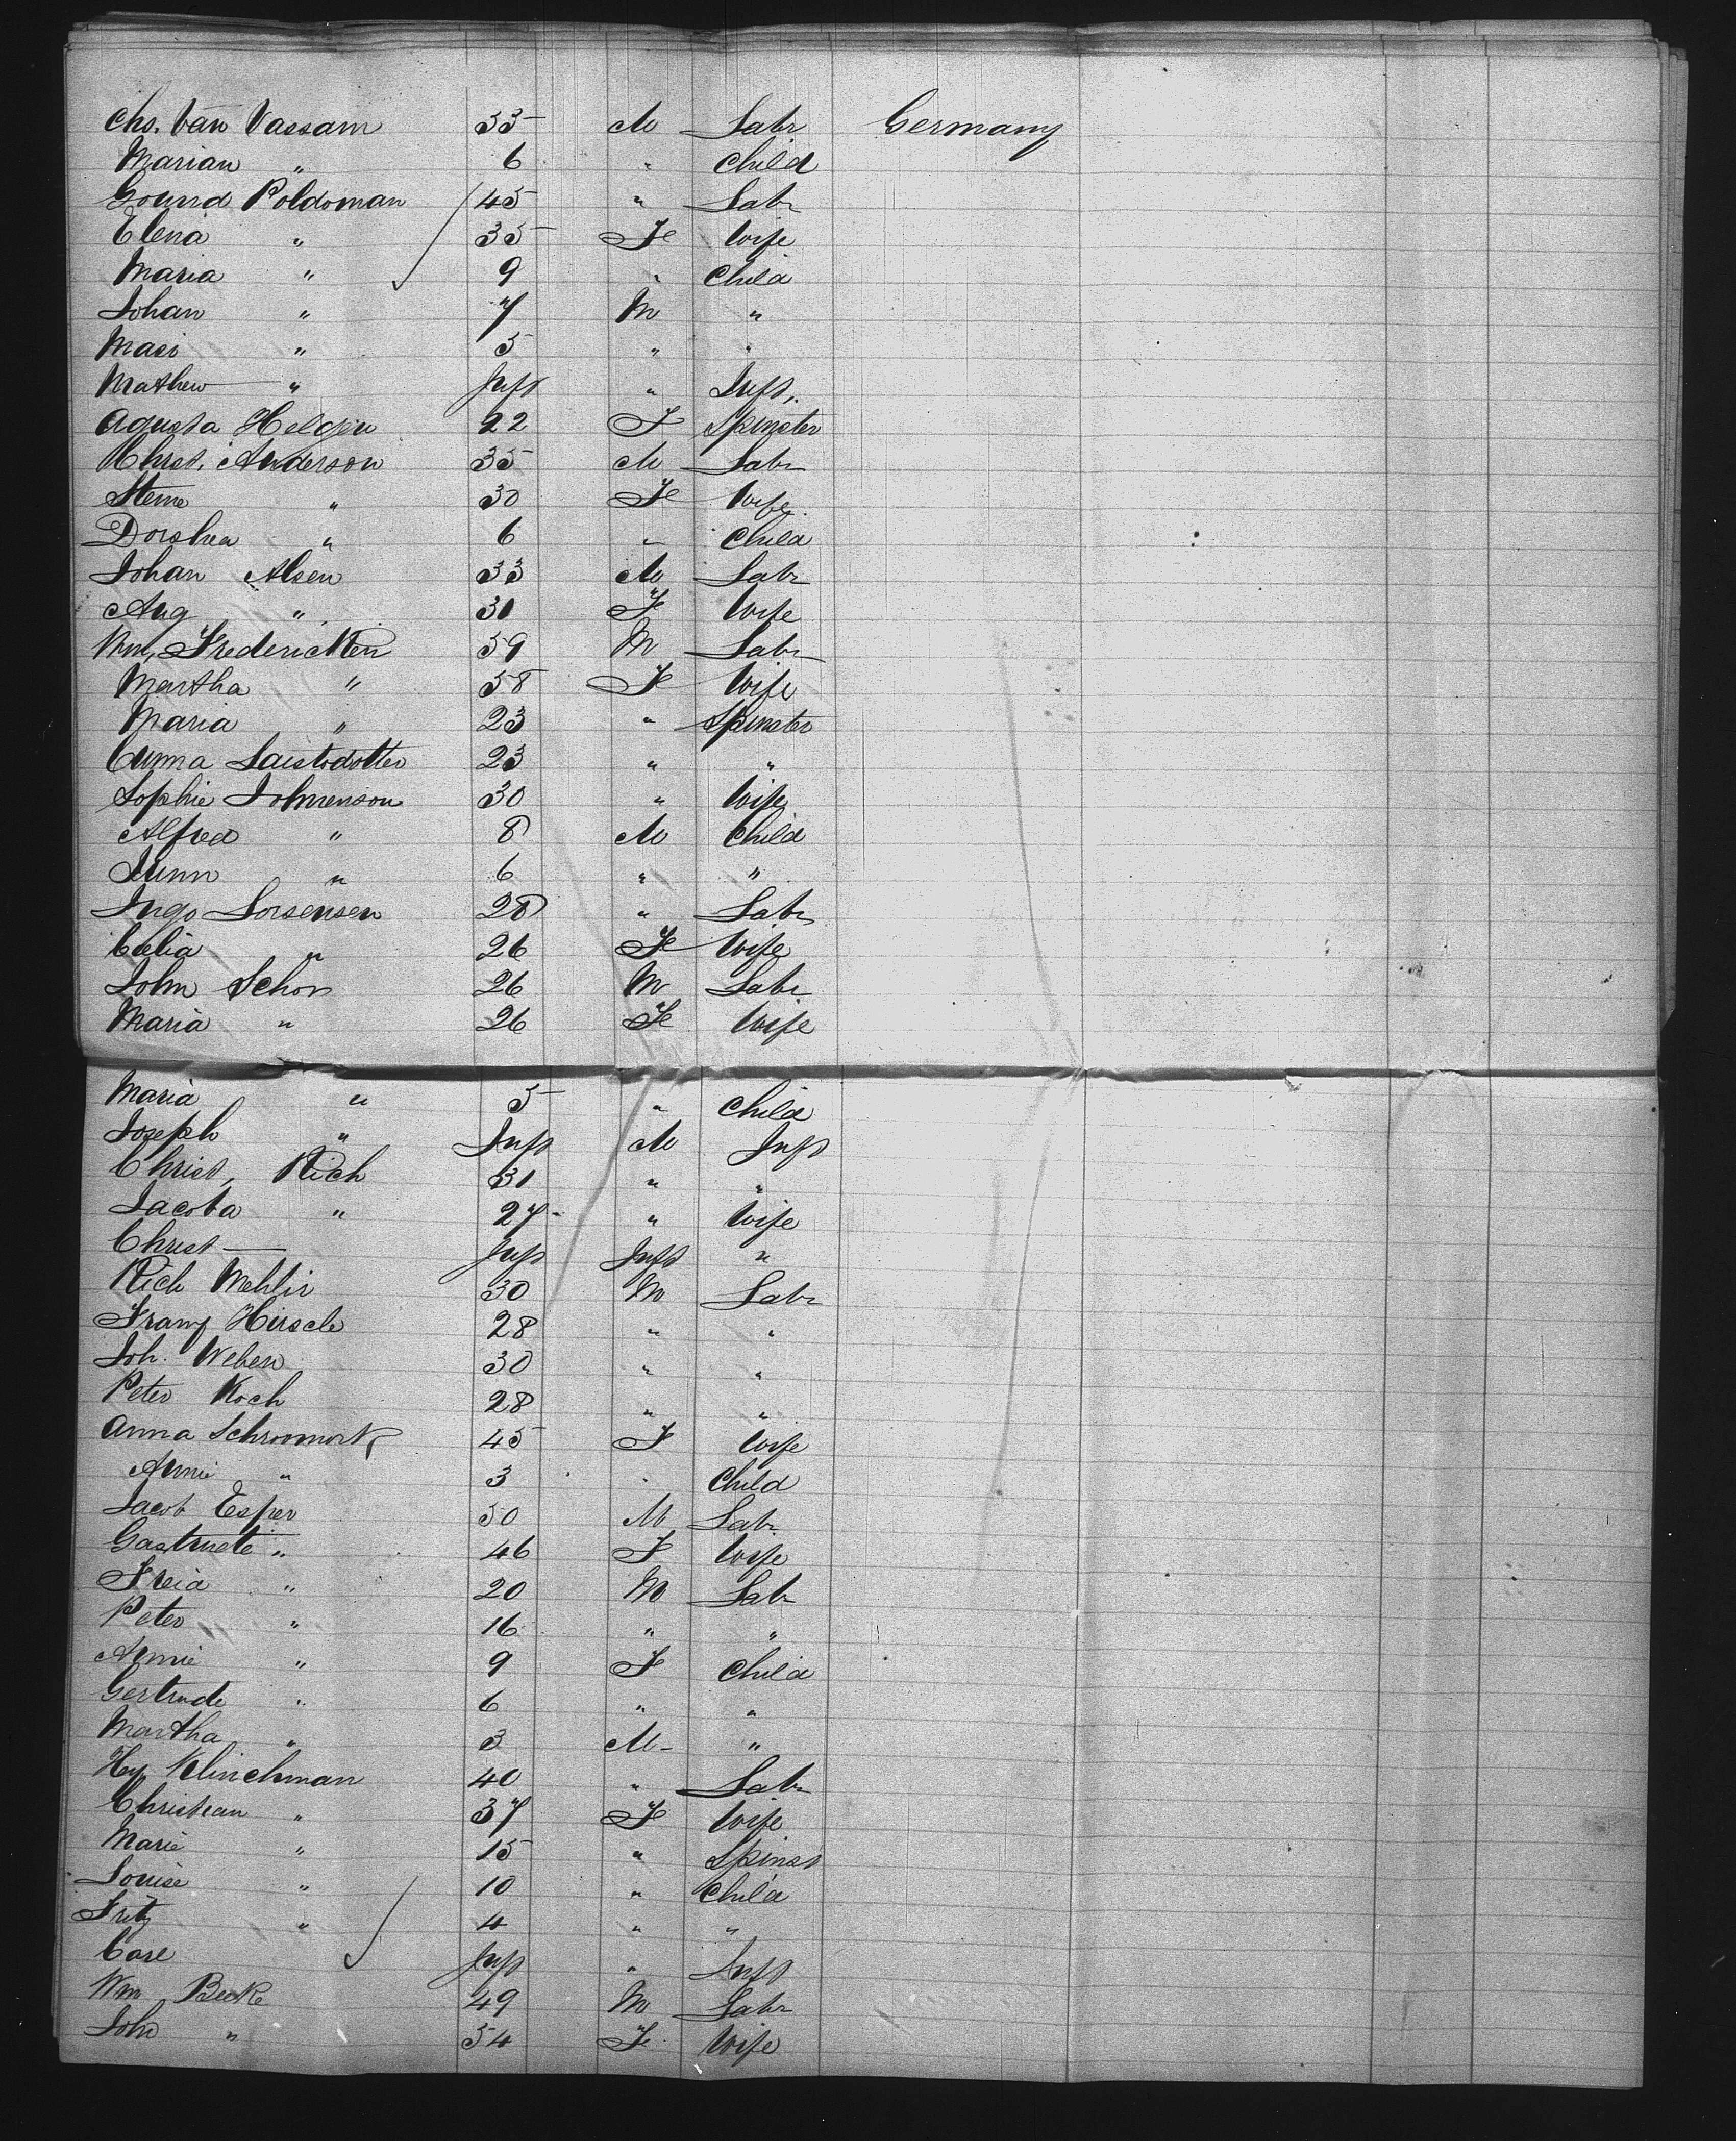 Chs. Van Vassam 35 M Labr Germany
Marian " 6 " Child
Gound Poldoman 45 " Labr
Elena " 35 Fe Wife
Maria " 9 " Child
Johan " 7 M "
Mari " 5 " "
Mathew " Inft " Inft.
Agusta 22 F Spinster
Christ. Anderson 35 M Labr
Steine " 30 Fe Wife
Dorshea " 6 " Child
Johan Alsen 33 M Labr
Aug " 31 Fe Wife
Wm. Frederickten 59 M Labr
Martha " 58 Fe Wife
Maria " 23 " Spinster
23 " "
Sophie Johnenson 30 " Wife
Alfred " 8 M Child
" 6 " "
Ingo Sorsensen 28 " Labr
Celia " 26 Fe Wife
John Schon 26 M Labr
Maria " 26 Fe Wife
Maria " 5 " Child
Joseph " Inft M Inft
Christ, Rich 31 " "
Jacoba " 27 " Wife
Christ — Inft Inft "
Rich Mehlir 30 M Labr
Franz Hirsch 28 " "
Joh. Weber 30 " "
Peter Koch 28 " "
Anna 45 F Wife
Annie " 3 " Child
Jacob Esper 50 M Labr
Gastruete " 46 F Wife
Freid " 20 M Labr
Peter " 16 " "
Annie " 9 F Child
Gertrude " 6 " "
Martha " 3 M "
Hy Klinchman 40 " Labr
Christian " 37 Fe Wife
Marie " 15 " Spinst
Louise " 10 " Child
Fritz " 4 " "
Carl Inft " Inft
Wm Beeke 49 M Labr
John " 54 Fe Wife